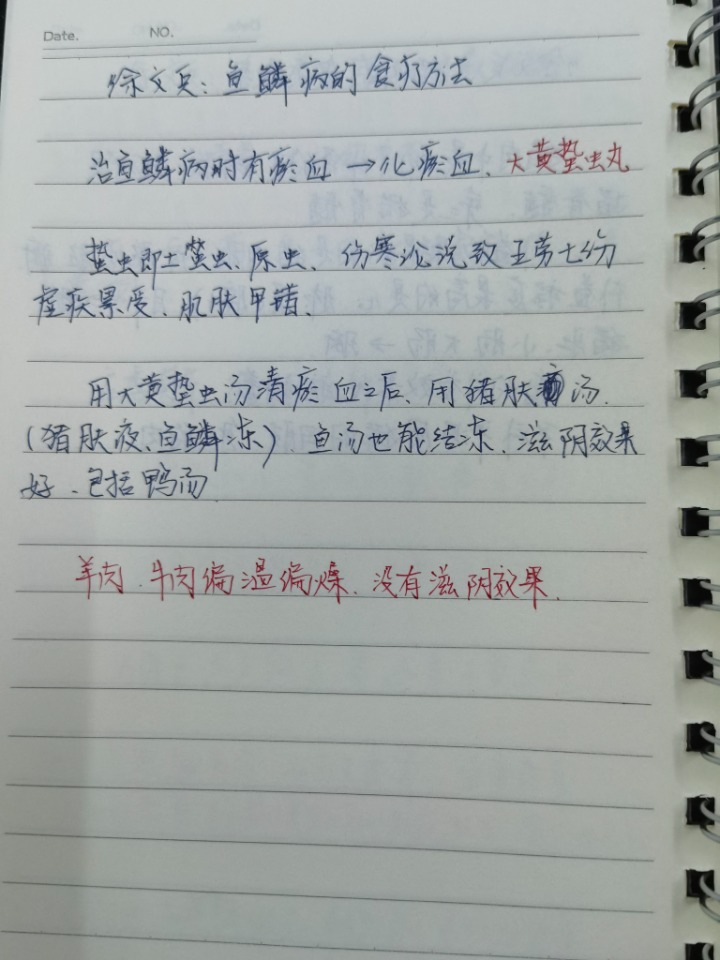 Date. NO.
徐文兵:鱼鳞病的食疗方法
治鱼鳞病时有瘀血→化瘀血、大黄蛰虫丸
蛰虫即土鳖虫、原虫、伤寒论说致五劳七伤
虚疾累受、肌肤甲错、
用大黄蛰虫汤清瘀血之后、用猪肤汤.
(猪肤液、鱼鳞冻)、鱼汤也能结冻、滋阴效果
好、包括鸭汤
羊肉、牛肉偏温偏燥、没有滋阴效果.